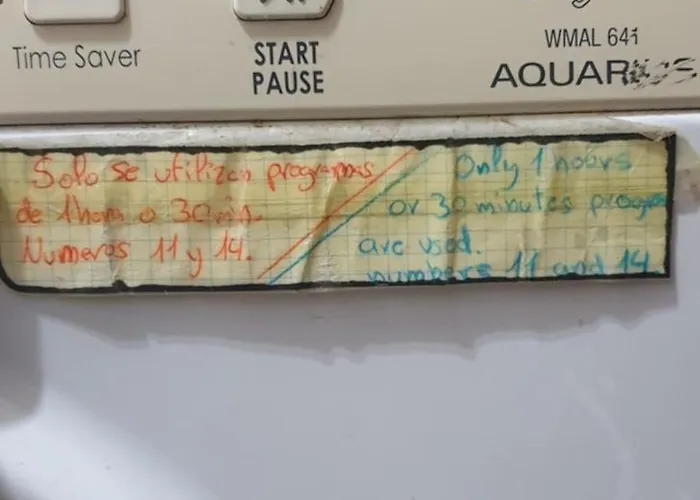 Time Saver
START
PAUSE
WMAL 641
AQUARIUS
Solo se utilizan programas
de 1 hora o 30 min.
Numeros 11 y 14.
Only 1 hours
or 30 minutes program
are used.
numbers 11 and 14.